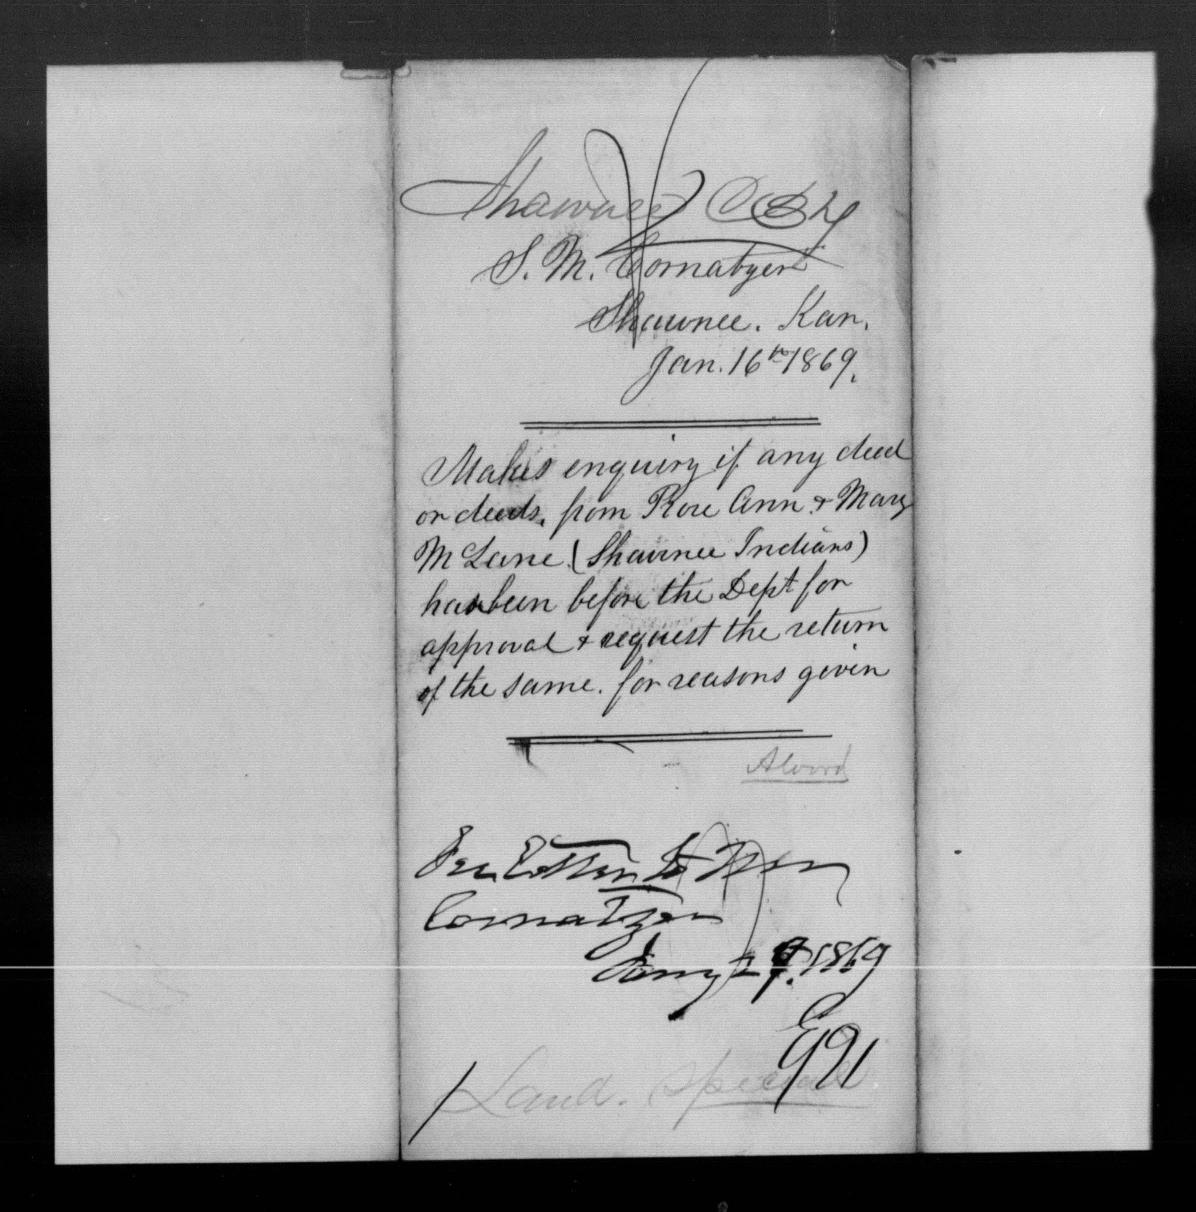 Shawnee
S. M. Cornatzer
Shawnee. Kan.
Jan. 16th 1869.
Makes enquiry if any deed
or deeds, from Rose Ann & Mary
McLane (Shawnee Indians)
has been before the Dept for
approval & request the return
of the same. for reasons given
Alvord
See letter to
Cornatzer
Jany 27. 1869
Land. Special